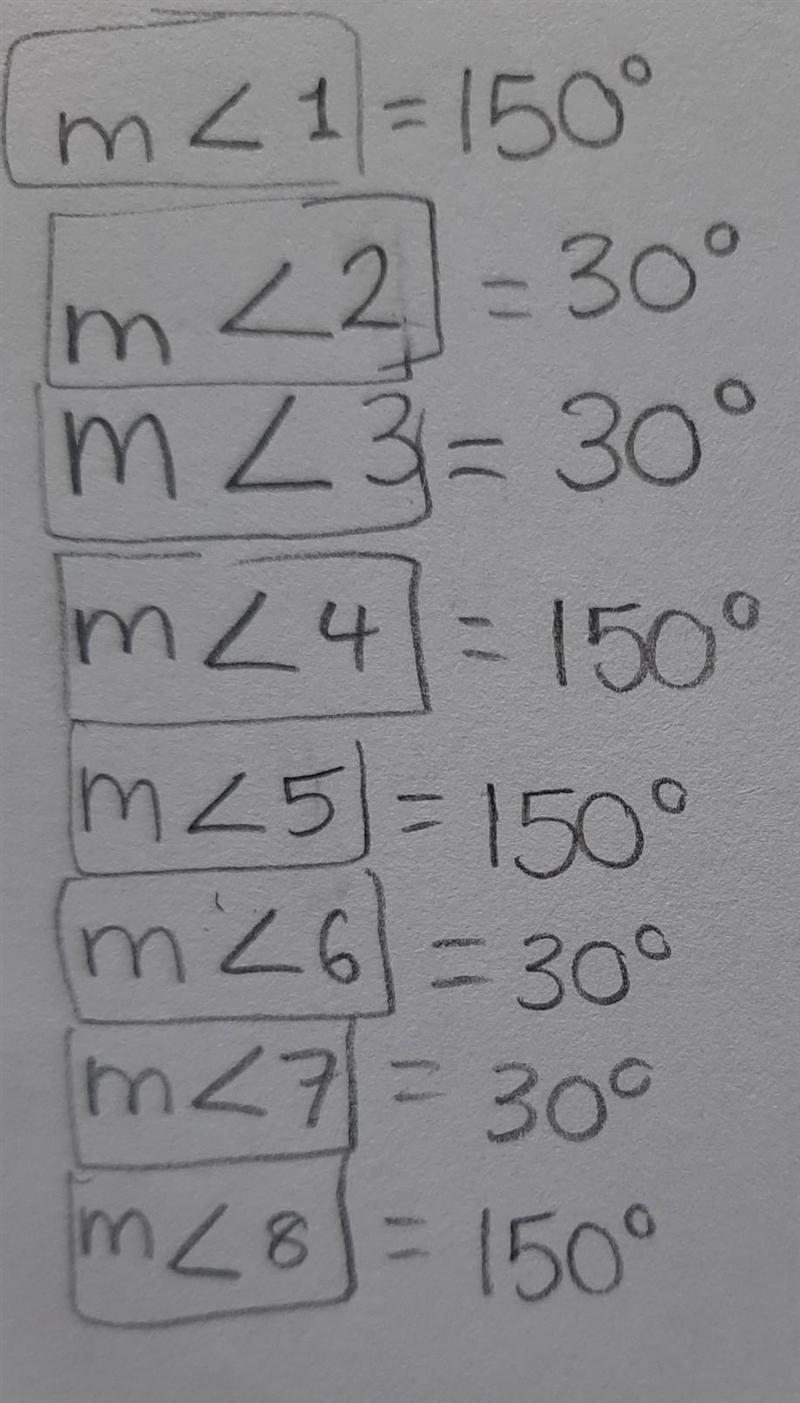 m < 1 = 150°
m < 2 = 30°
m < 3 = 30°
m < 4 = 150°
m < 5 = 150°
m < 6 = 30°
m < 7 = 30°
m < 8 = 150°